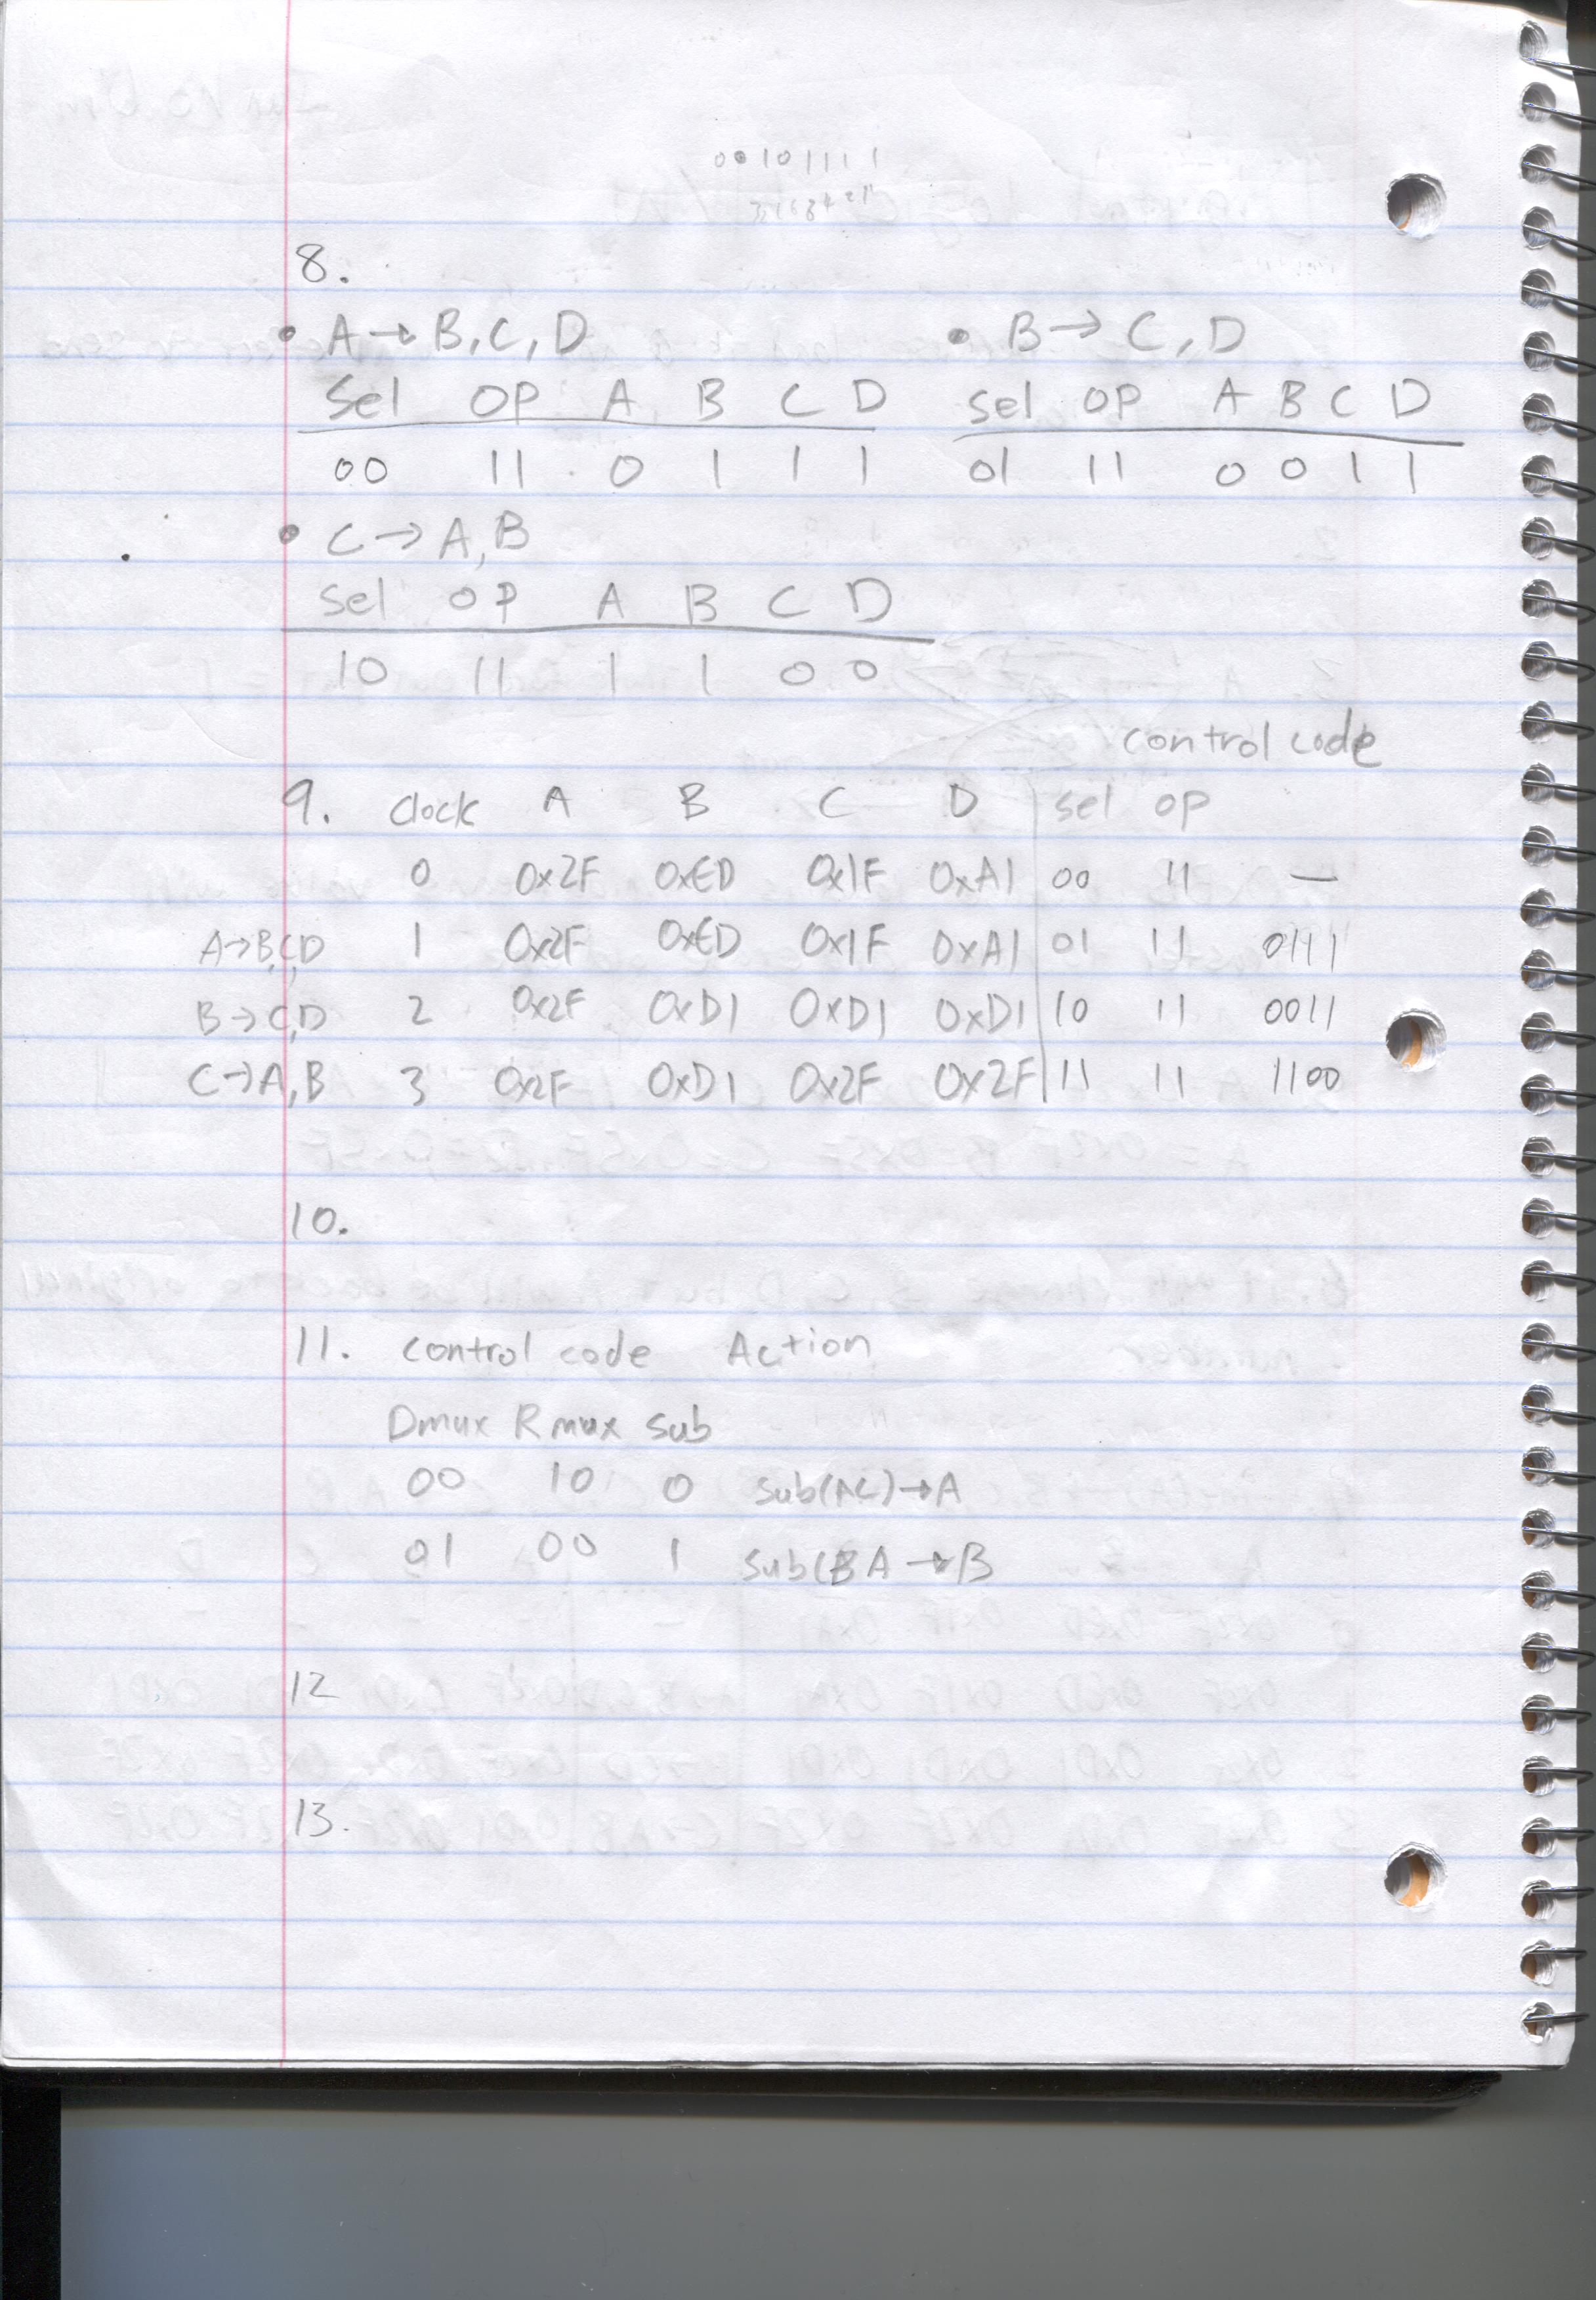 00101111
8.
• A→B,C,D
Sel OP A B C D
00 11 0 1 1 1
• B→C,D
sel OP A B C D
01 11 0 0 1 1
• C→A,B
Sel OP A B C D
10 11 1 1 0 0
control code
9. Clock A B C D sel OP
0 0x2F 0xED 0x1F 0xA1 00 11 —
A→B,C,D 1 0x2F 0xED 0x1F 0xA1 01 11 0111
B→C,D 2 0x2F 0xD1 0xD1 0xD1 10 11 0011
C→A,B 3 0x2F 0xD1 0x2F 0x2F 11 11 1100
10.
11. control code Action
Dmux Rmux Sub
00 10 0 Sub(AC)→A
01 00 1 Sub(BA→B
12
13.